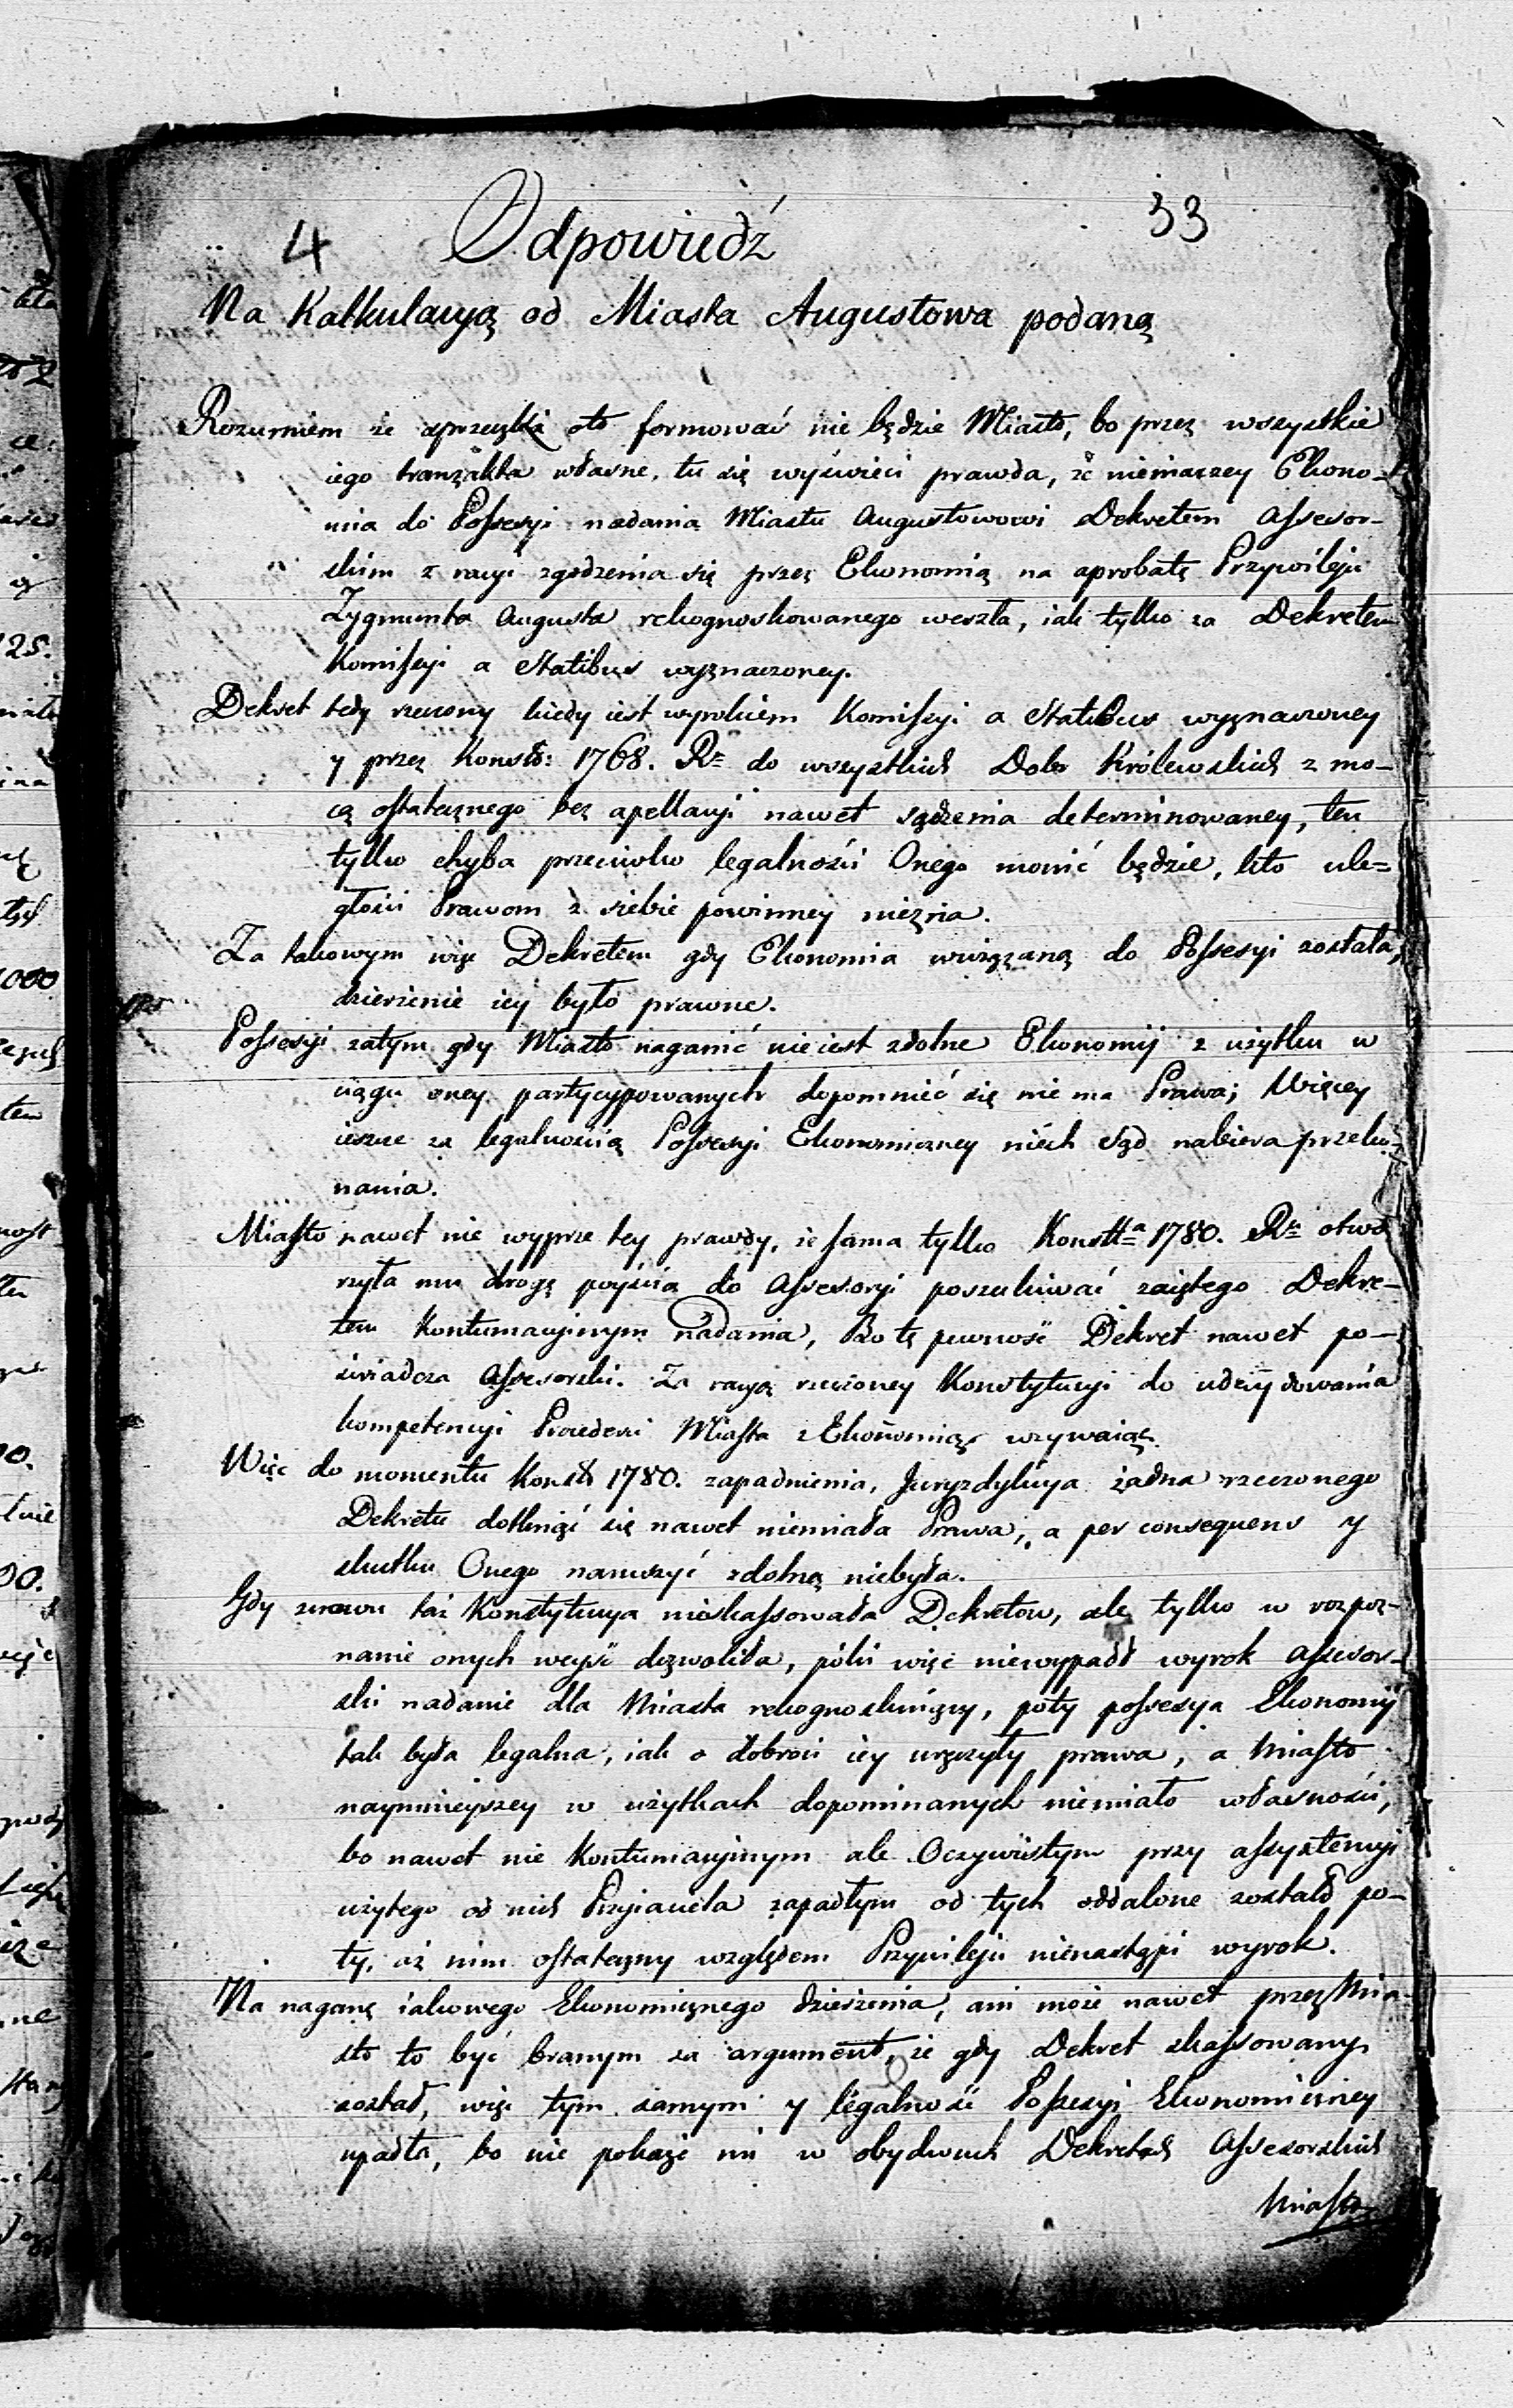 4 Odpowiedź 33
Na Kalkulacyą od Miasta Augustowa podaną
Rozumiem że sprzeczki oto formować nie będzie Miasto, bo przez wszystkie
iego tranzakta własne, tu się wyświeci prawda, że nieinaczey Ekono-
mia do Possesyi nadania Miastu Augustowowi Dekretem Assesor-
skim z racyi zgodzenia się przez Ekonomią na aprobatę Przywileju
Zygmunta Augusta rekognoskowanego weszła, iak tylko za Dekretem
Komissyi a Statibus wyznaczoney.
Dekret tedy rzeczony kiedy iest wyrokiem Komissyi a Statibus wyznaczoney
y przez Konstt: 1768. Rº do wszystkich Dobr Królewskich z mo-
cą ostatecznego bez apellacyi nawet sądzenia determinowaney, ten
tylko chyba przeciwko legalności Onego mowić będzie, kto ule=
głości Prawom z siebie powinney niezna.
Za takowym więc Dekretem gdy Ekonomia wwiązaną do Possesyi została,
dzierżenie iey było prawne.
Possesyi zatym gdy Miasto naganić nie iest zdolne Ekonomij z użytku w
ciągu oney partycypowanych dopomnieć się nie ma Prawa; Więcey
ieszcze za legalnością Possesyi Ekonomiczney niech Sąd nabiera przeko-
nania.
Miasto nawet nie wyprze tey prawdy, że sama tylko Konsttª 1780. Rº otwo
rzyła mu drogę poyścia do Assesoryi poszukiwać zaiętego Dekre-
tem Kontumacyinym nadania, Bo tę pewność Dekret nawet po-
świadcza Assesorski. Za racyą rzeczoney Konstytucyi do udecydowania
kompetencyi Procederu Miasta z Ekonomią wzywaiąc.
Więc do momentu Konstt 1780. zapadnienia, Juryzdykcya żadna rzeczonego
Dekretu dotknąć się nawet niemiała Prawa, a per consequens y
skutku Onego naruszyć zdolną niebyła.
Gdy znowu taż Konstytucya nieskassowała Dekretow, ale tylko w rozpoz-
nanie onych weyść dozwoliła, póki więc niewypadł wyrok Assesor-
ski nadanie dla Miasta rekognoskuiący, poty possesya Ekonomij
tak była legalna, iak o dobroci iey uręczyły prawa, a Miasto
naymnieyszey w użytkach dopominanych niemiało własności,
bo nawet nie Kontumacyinym ale Oczywistym przy assystencyi
użytego od nich Przyiaciela zapadłym od tych oddalone zostało po-
ty, aż nim ostateczny względem Przywileju nienastąpi wyrok.
Na naganę iakowego Ekonomicznego dzierżenia, ani może nawet przez Mia-
sto to być branym za argument, że gdy Dekret skassowany
został, więc tym samym y legalność Possesyi Ekonomiczney
upadła, bo nie pokaże mi w obydwuch Dekretach Assesorskich
Miasto